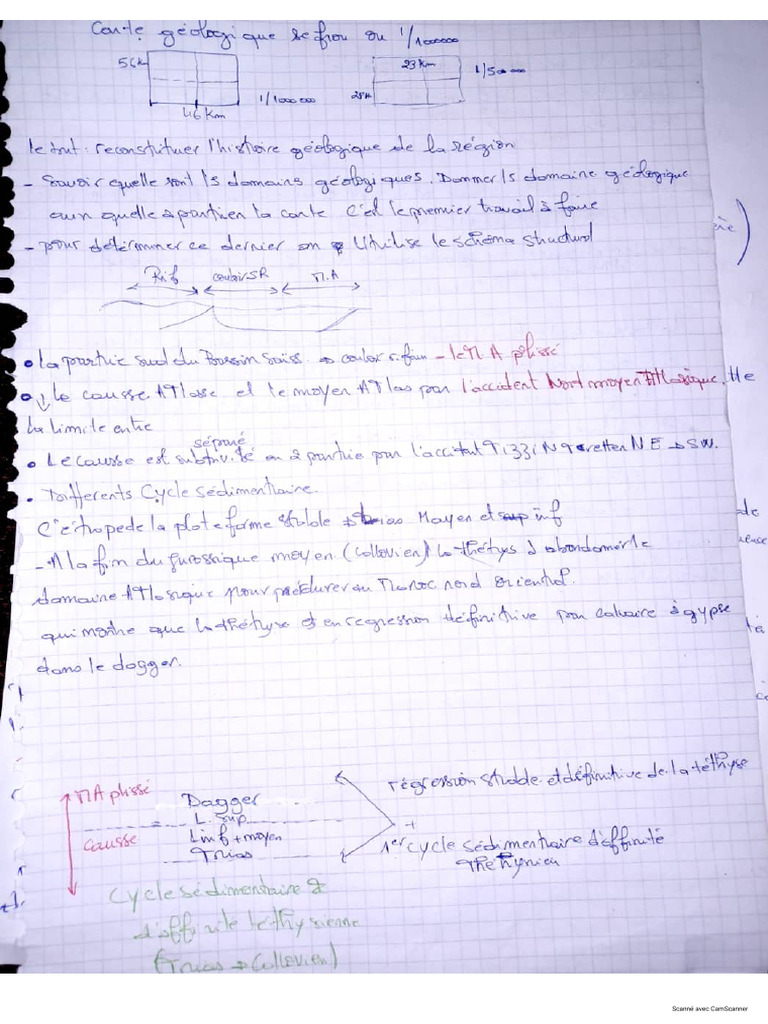 Carte géologique sefrou au 1/100000
56k
46 Km
1/100 000
23 Km
28k
1/50 000
le but : reconstituer l'histoire géologique de la région
- Savoir quelle sont ls domains géologiques. Dommer ls domaine géologique
aux quelle apartien la carte c'est le premier travail à faire
- pour déterminer ce dernier on utilise le schéma structural
Rif couloir SR M.A
• la partie sud du Bassin Saiss → couloir - le M A plissé
• le causse Atlasse et le moyen Atlas par l'accident Nord moyen Atlasique.
la limite entre
séparé
• Le causse est subdivisé en 2 partie par l'accident NE → SW.
• Differents Cycle Sédimentaire.
de la plateforme stable → Moyen et inf
- A la fin du jurassique moyen (Callovien) la théthys à abondonner le
domaine Atlasique pour au Maroc nord oriental.
qui montre que la théthyse et en regression définitive par calcaire à gypse
dans le dogger.
régression stable et définitive de la téthyse
M A plissé
Dagger
L. Sup
+
Causse
L inf + moyen
Trias
1er cycle sédimentaire d'affinité
Thethynien
Cycle sédimentaire
d'affinité téthysienne
(trias → Callovien)
Scanné avec CamScanner